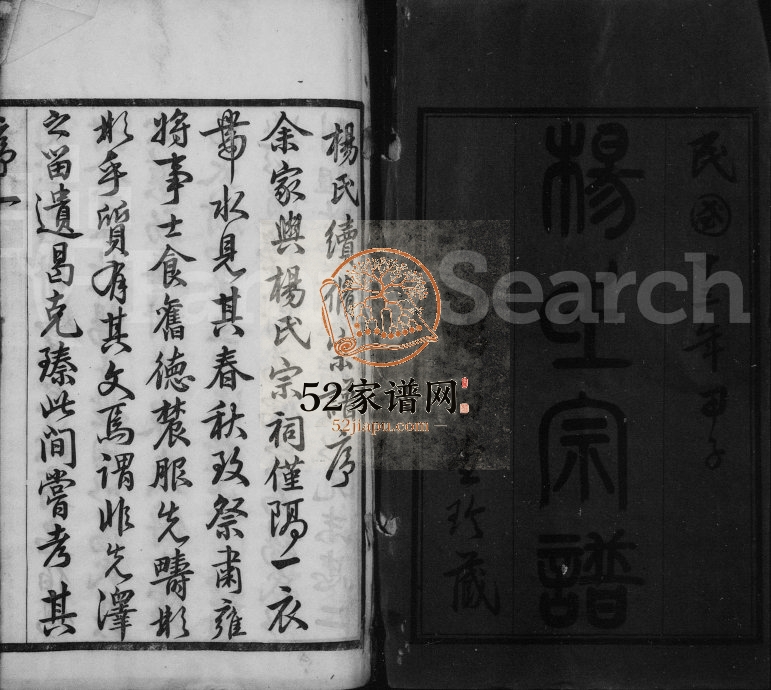 民國十三年甲子
楊氏宗譜
堂珍藏
楊氏續修宗譜序
余家與楊氏宗祠僅隔一衣
帶水見其春秋致祭肅雍
將事士食舊德農服先疇彬
彬乎質有其文焉謂非先澤
之留遺曷克臻此間嘗考其
序一
Search
52家谱网
52jiapu.com